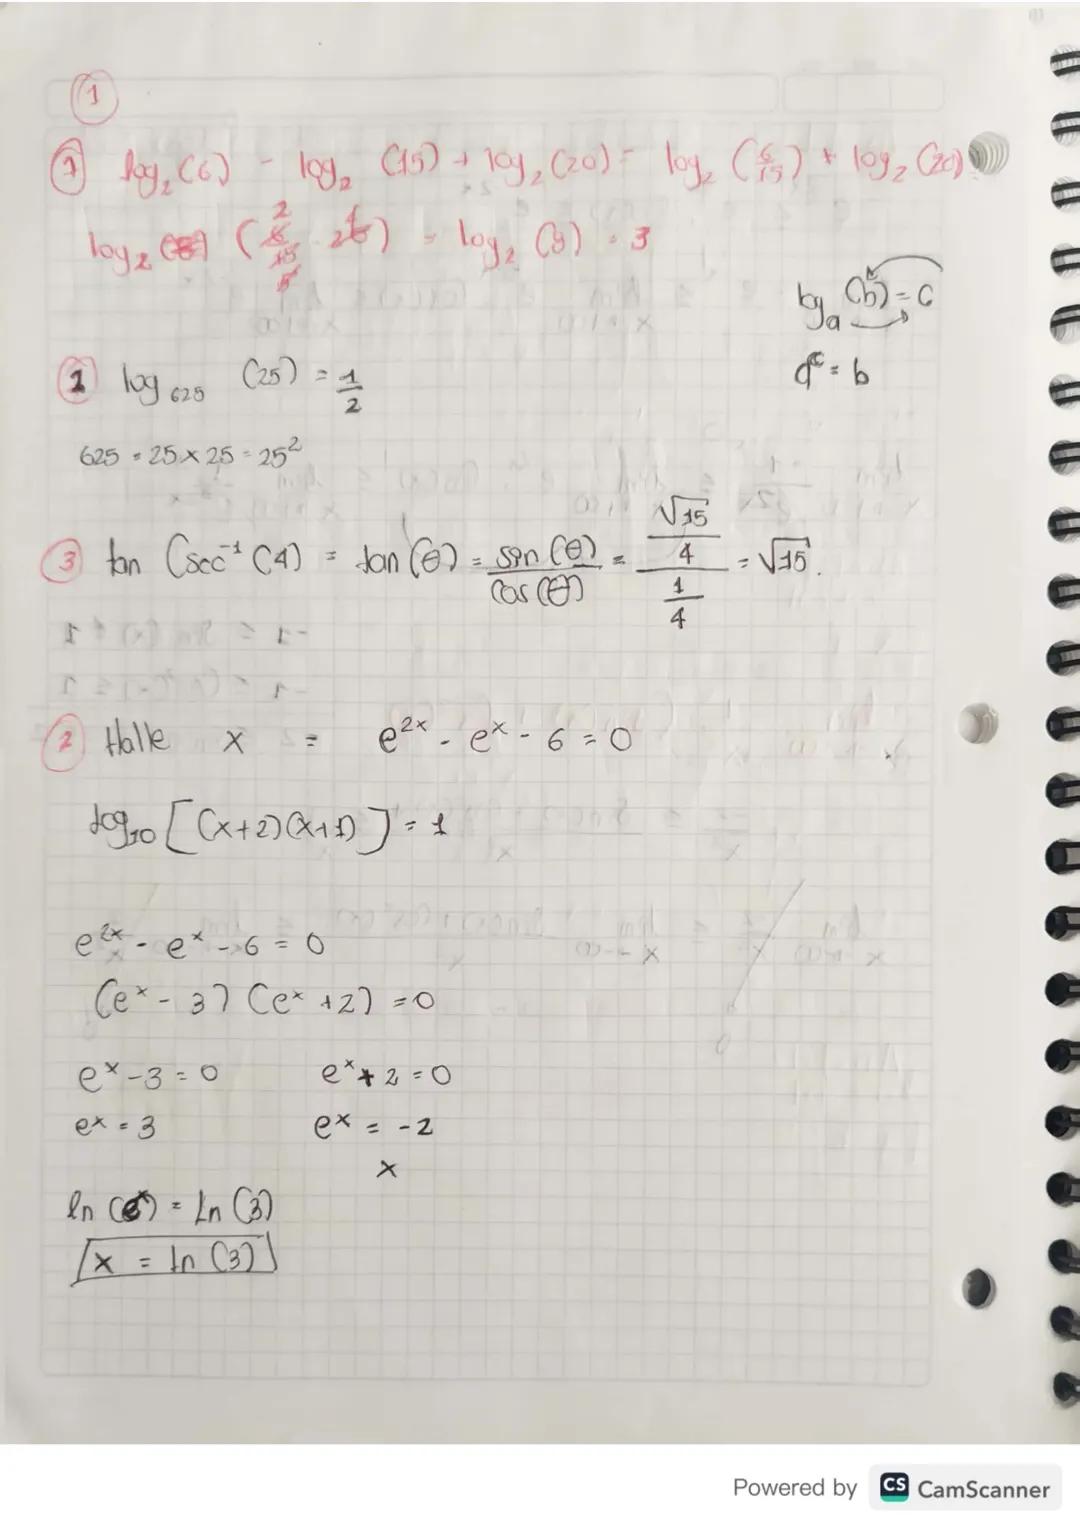 1
1 log₂(6) - log₂(15) + log₂(20) = log₂(6/15) + log₂(20)
log₂ (6/15 · 20) = log₂(8) = 3
2 5 4
logₐ(b) = c
aᶜ = b
1 log₆₂₅ (25) = 1/2
625 = 25 x 25 = 25²
3 tan (sec⁻¹(4) = tan(θ) = sen(θ)/cos(θ) = (√15/4)/(1/4) = √15.
2 Halle x = e²ˣ - eˣ - 6 = 0
log₁₀[(x+2)(x+1)] = 1
e²ˣ - eˣ - 6 = 0
(eˣ - 3)(eˣ + 2) = 0
eˣ - 3 = 0 eˣ + 2 = 0
eˣ = 3 eˣ = -2
x
ln(eˣ) = Ln(3)
x = ln(3)
Powered by CS CamScanner